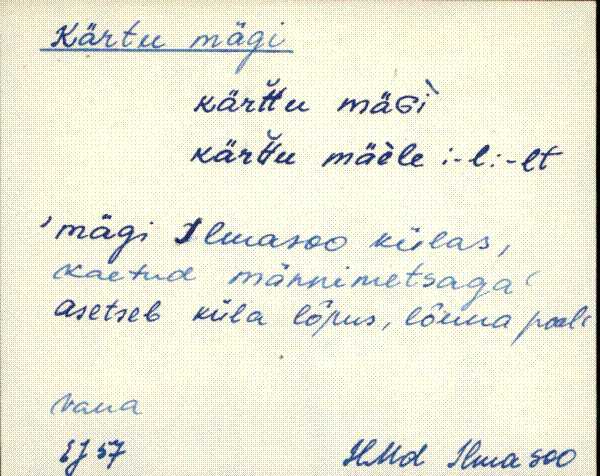 Kärtu mägi
kärt̆t̆u mäGì
kärt̆t̆u mäèle :-l :-lt
'mägi Ilmasoo külas,
kaetud männimetsaga'
asetseb küla lõpus, lõuna pool
vana
EJ 57 HMd Ilmasoo